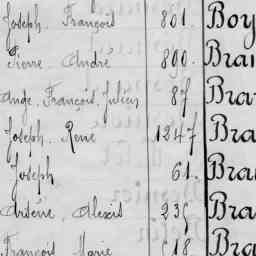 Joseph. François 801. Boy
Pierre. André 800. Brai
Ange. François. Julien 87 Bra
Joseph. René 1247 Bra
Joseph 61. Bra
Arsène. Alexis 235 Bra
François. Marie 618. Bra